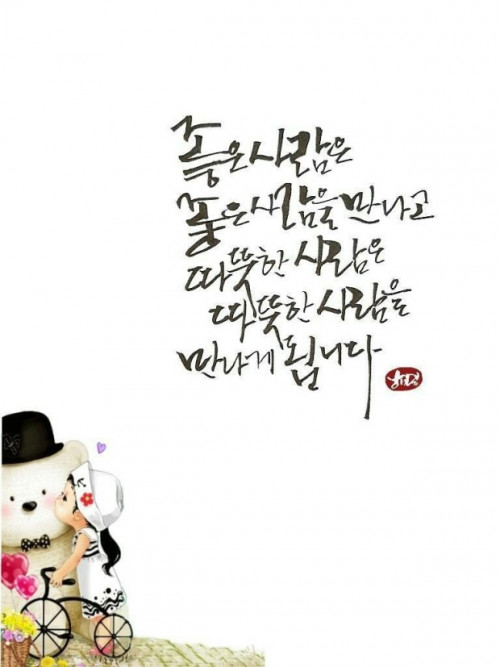 좋은 사람은
좋은 사람을 만나고
따뜻한 사람은
따뜻한 사람을
만나게 됩니다